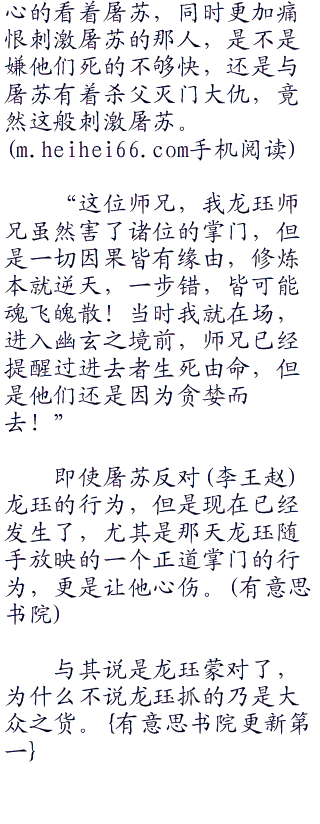 心的看着屠苏，同时更加痛
恨刺激屠苏的那人，是不是
嫌他们死的不够快，还是与
屠苏有着杀父灭门大仇，竟
然这般刺激屠苏。
(m.heihei66.com手机阅读)
“这位师兄，我龙珏师
兄虽然害了诸位的掌门，但
是一切因果皆有缘由，修炼
本就逆天，一步错，皆可能
魂飞魄散！当时我就在场，
进入幽玄之境前，师兄已经
提醒过进去者生死由命，但
是他们还是因为贪婪而
去！”
即使屠苏反对(李王赵)
龙珏的行为，但是现在已经
发生了，尤其是那天龙珏随
手放映的一个正道掌门的行
为，更是让他心伤。(有意思
书院)
与其说是龙珏蒙对了，
为什么不说龙珏抓的乃是大
众之货。{有意思书院更新第
一}